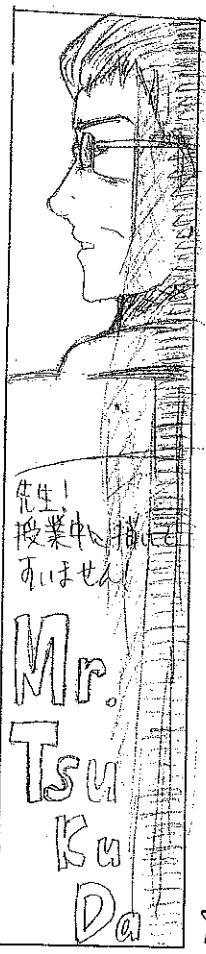 先生!
授業中に描いて
すいません!
Mr.
Tsu
Ku
Da